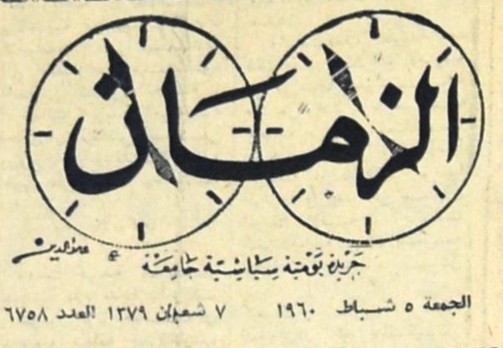 الزمان
جريدة يومية سياسية جامعة
الجمعة ٥ شباط ١٩٦٠ ٧ شعبان ١٣٧٩ العدد ٦٧٥٨